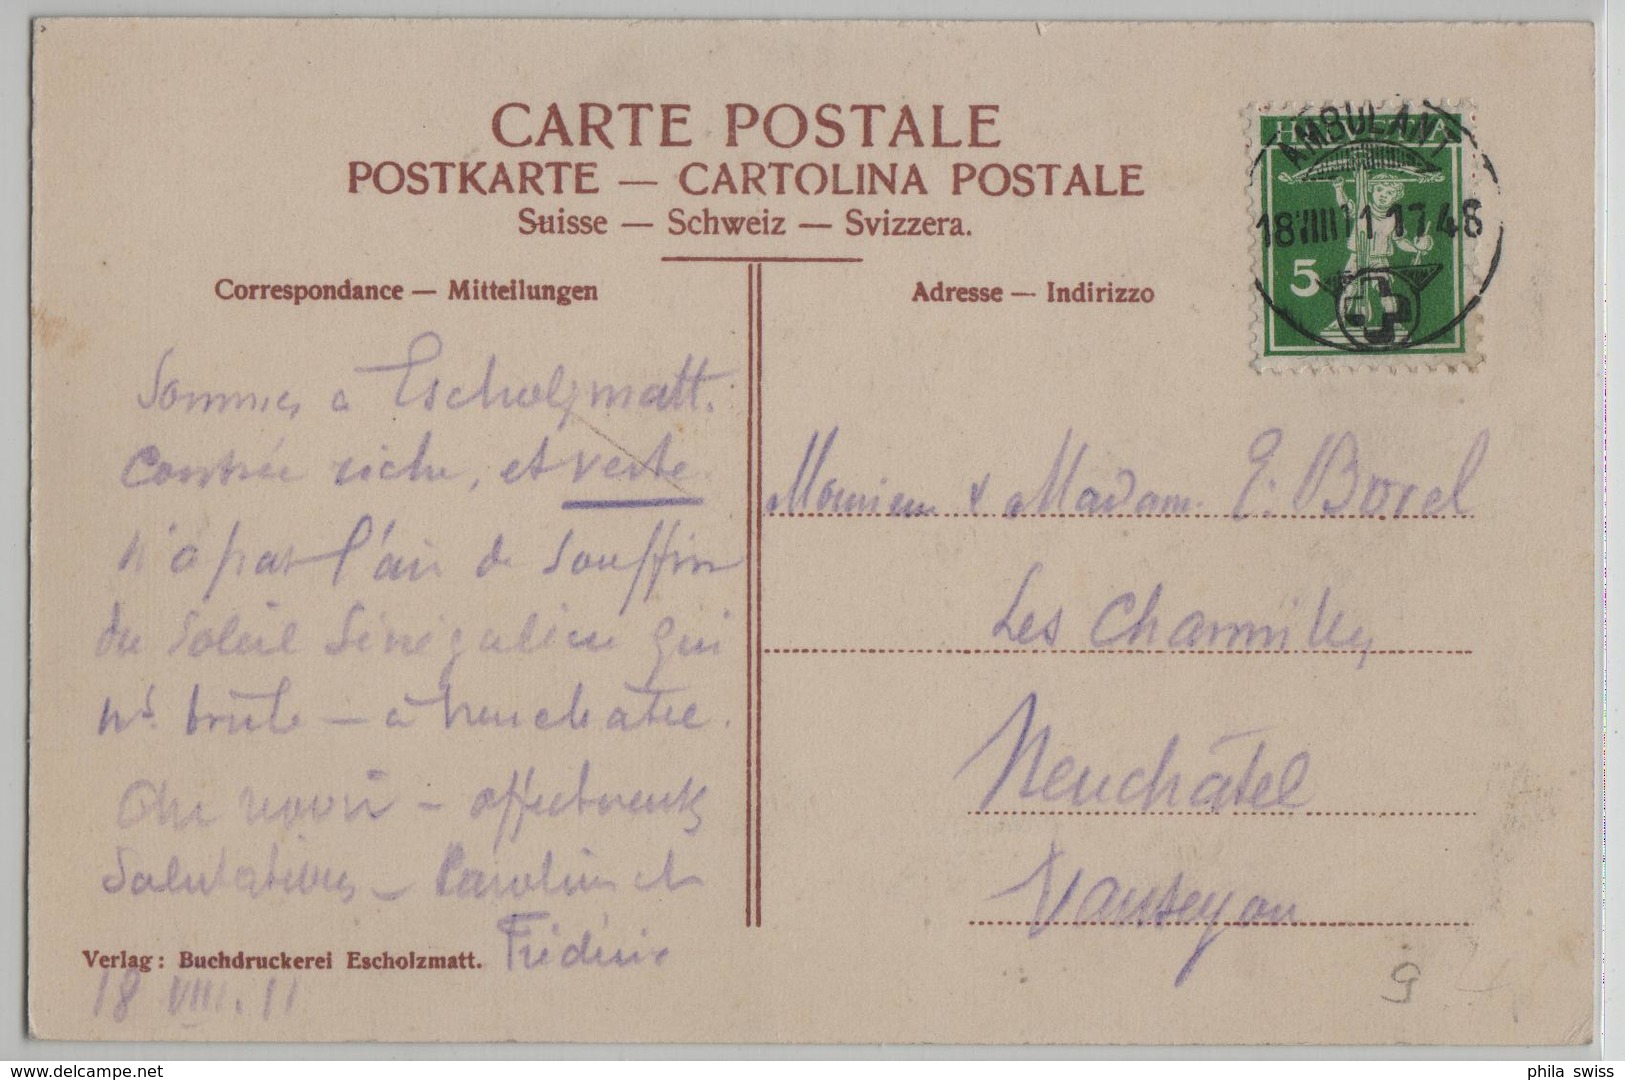 CARTE POSTALE
POSTKARTE — CARTOLINA POSTALE
Suisse — Schweiz — Svizzera.
Correspondance — Mitteilungen
Adresse — Indirizzo
AMBULANT
HELVETIA
18.VIII 11 17 48
5
Sommes à Escholzmatt.
Contrée riche, et verte
n'a pas l'air de souffrir
du soleil Sénégalien qui
ns. brûle – à Neuchâtel.
Au revoir – affectueuses
Salutations – Caroline et
Frédéric
18 VIII. 11
Monsieur & Madame E. Borel
Les Charmilles
Neuchâtel
Vauseyon
Verlag: Buchdruckerei Escholzmatt.
9
www.delcampe.net
phila_swiss